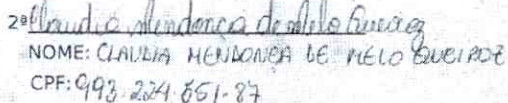 2ª Claudia Mendonça de Melo Queiroz
NOME: CLAUDIA MENDONÇA DE MELO QUEIROZ
CPF: 993.224.551-87